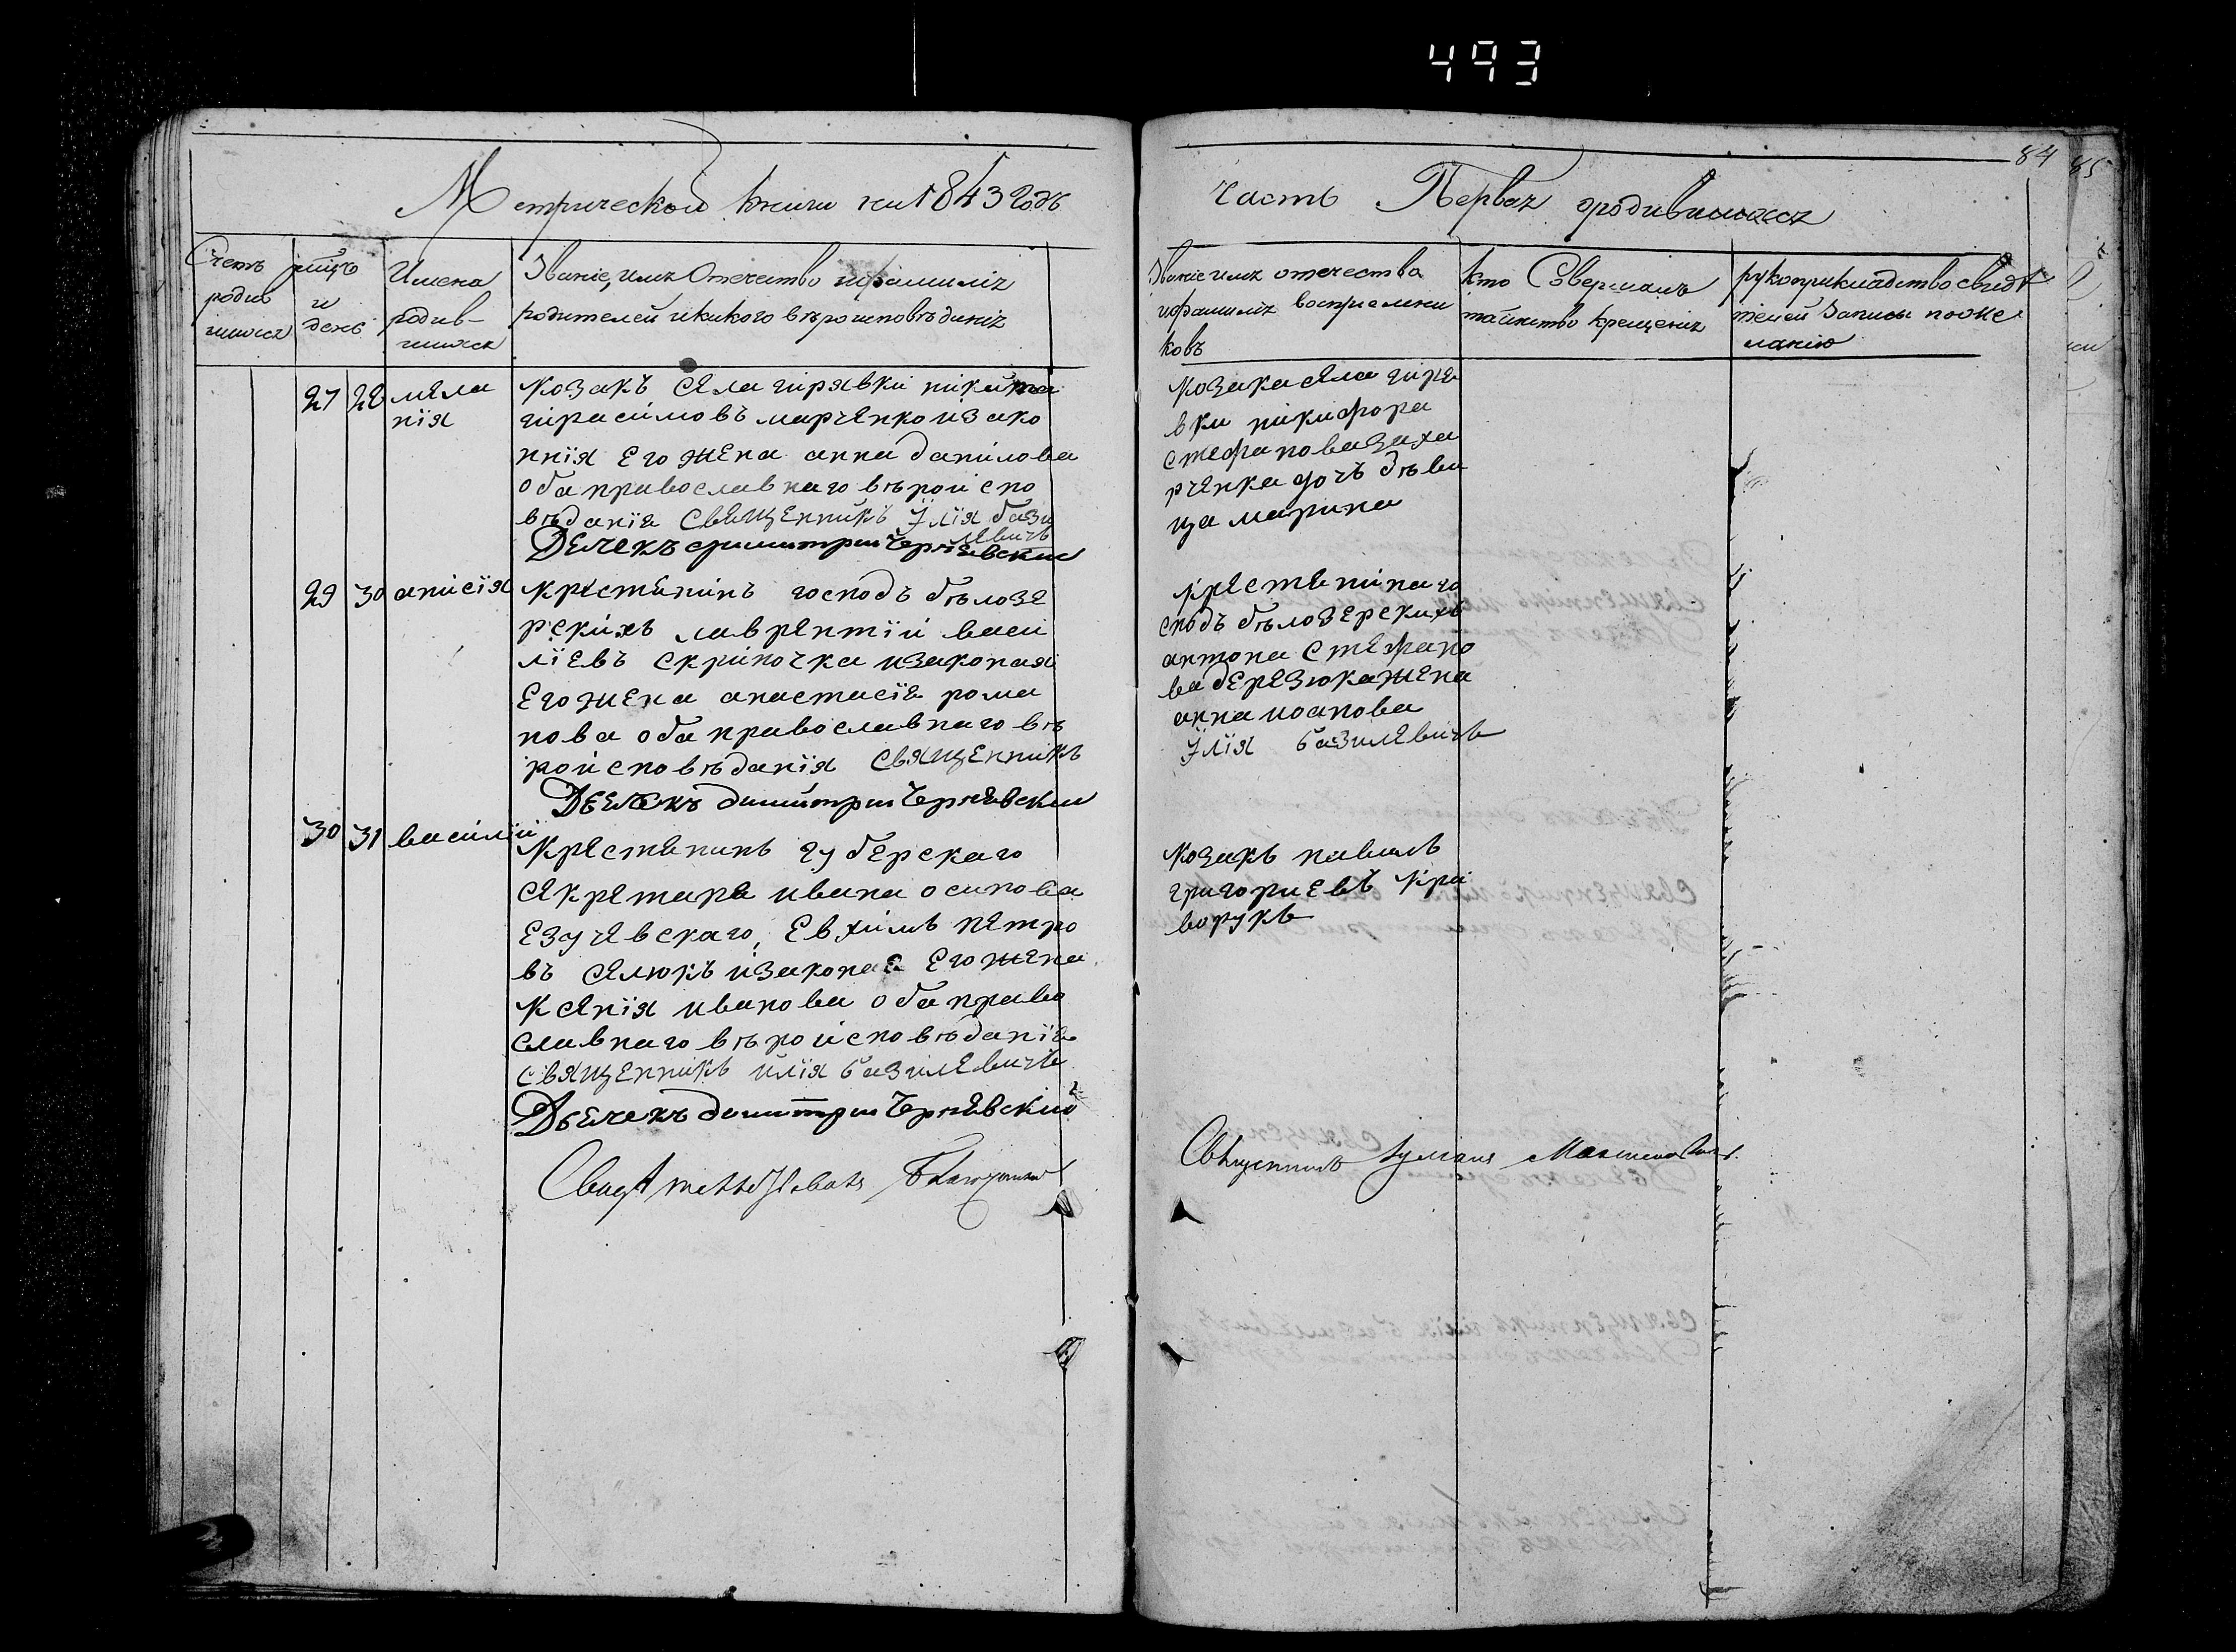 493
84
85
Метрической книги на 1843 годъ
Счетъ родив шихся
мцъ и день
Имена родив- шихся
Званіе, имя Отечество ифамилія
родителей икакого вѣроисповѣданія
27 28 мяла
нія
козакъ сяла гірявки нікита
гірасімовъ марчянко изако
ннія Его жена анна данілова
оба православнаго вѣроиспо
вѣданія священникъ Їлія бази
лявичъ
Дьячекъ димитрий Чернявский
29 30 анісія
крястянинъ господъ бѣлозя
рскіхъ лаврянтїй васи
лїевъ скріпочка изаконая
Его жена анастасїя рома
нова оба православнаго вѣ
роисповѣданїя священникъ
Дьячекъ димитрий Чернявский
30 31 васілїй
крястянинъ губярскаго
сякрятаря ивана осипова
Езучявскаго, Евхімъ пятро
въ сялюкъ изаконая Его жяна
ксянїя иванова оба право
славнаго вѣроисповѣданїя
священникъ илїя базилявичъ
Дьячекъ димитрий Чернявский
часть Первая ородившихся
Званіе имя отечества
ифамилія воспріемни
ковъ
кто Совершалъ
таинство крещенія
рукоприкладство свидѣ
телей Записы по же
ланію
козака сяла гіря
вки никифора
стефанова заха
рчянка дочъ дѣви
ца марина
крястянина го
сподъ бѣлозЕрскихъ
антона стяфано
ва дЕрязюка жена
анна иоанова
Їлїя базилявичъ
козакъ павелъ
григориевъ крі
ворукъ
Священникъ